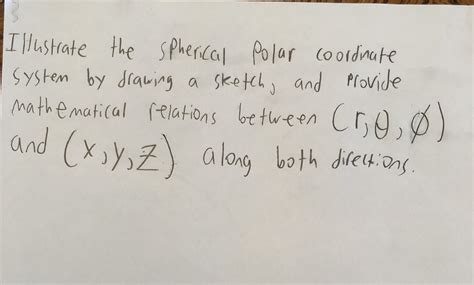 Illustrate the spherical polar coordinate
system by drawing a sketch, and provide
mathematical relations between (r, θ, ϕ)
and (x, y, z) along both directions.